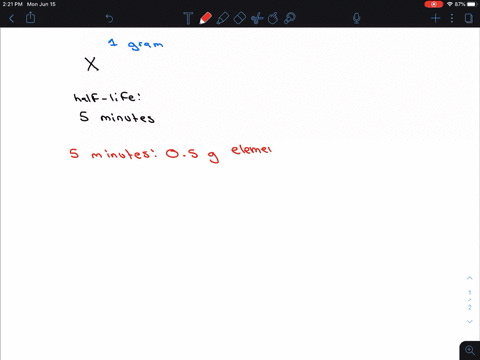 2:21 PM Mon Jun 15
87%
T
1 gram
X
half-life:
5 minutes
5 minutes: 0.5 g elemen
1
2